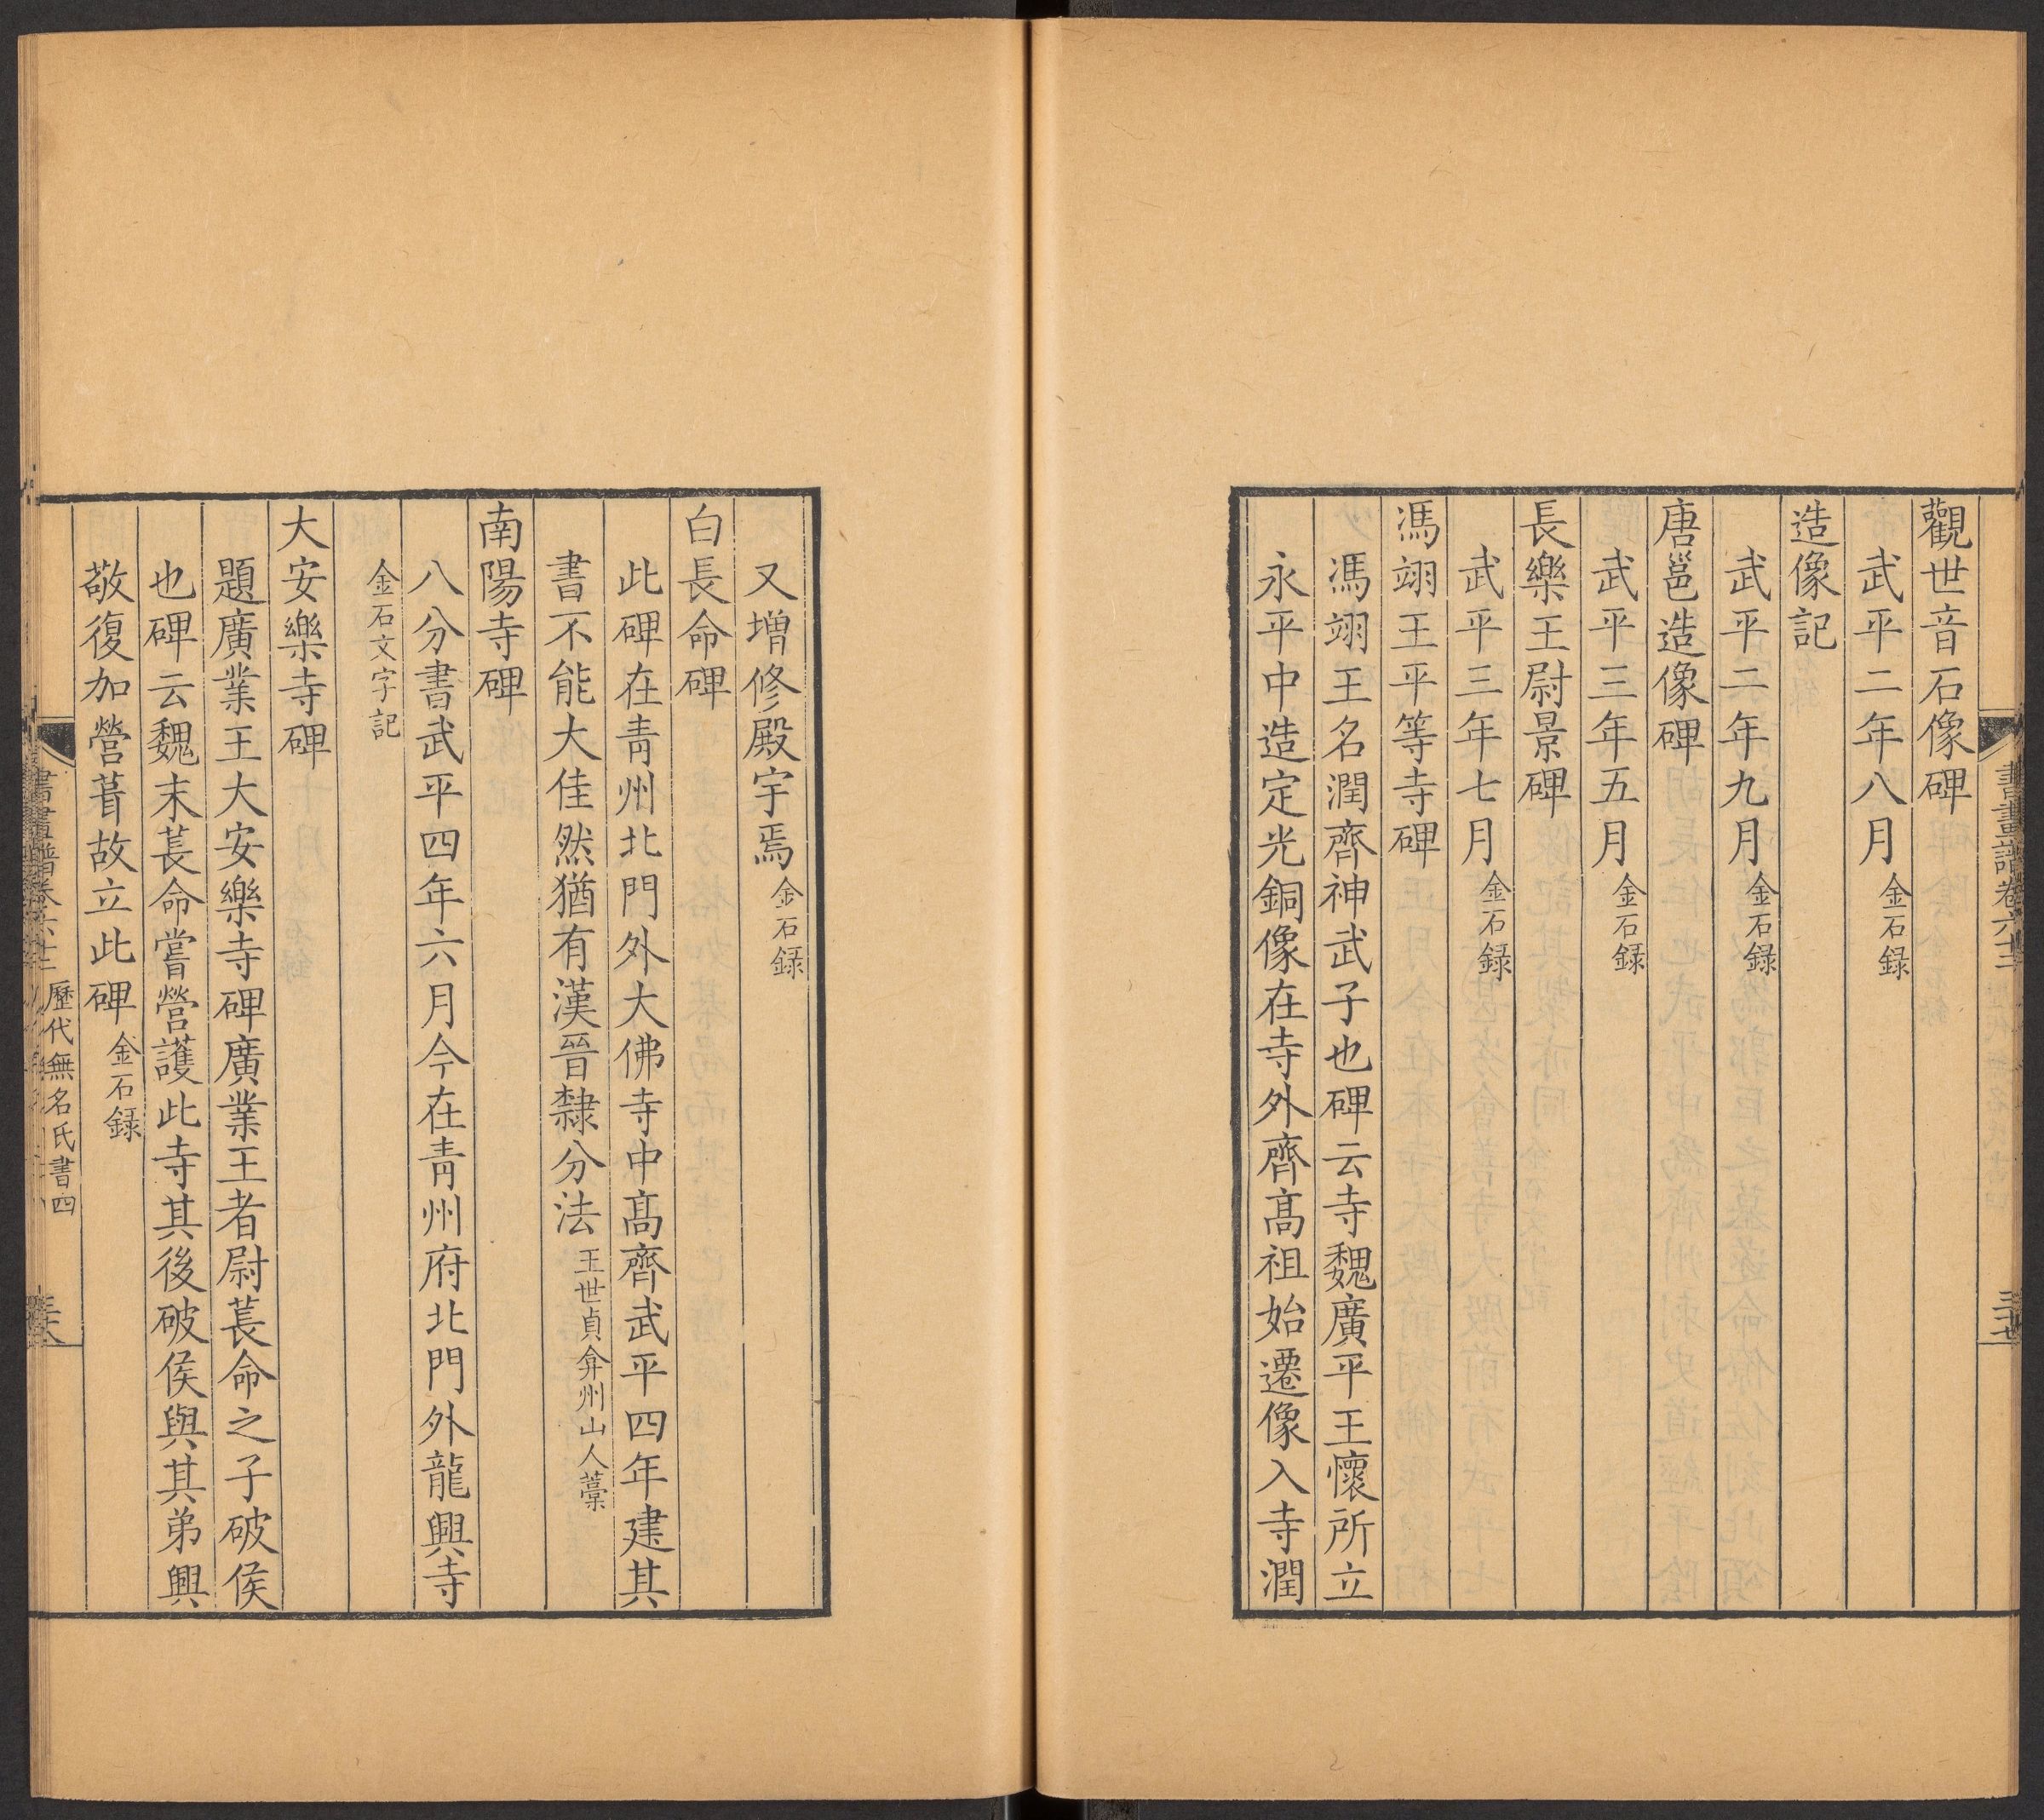 觀世音石像碑
武平二年八月金石録
造像記
武平二年九月金石録
唐邕造像碑
武平三年五月金石録
長樂王尉景碑
武平三年七月金石録
馮翊王平等寺碑
馮翊王名潤齊神武子也碑云寺魏廣平王懷所立
永平中造定光銅像在寺外齊髙祖始遷像入寺潤
書畫譜卷六十二
三十七
又增修殿宇焉金石録
白長命碑
此碑在青州北門外大佛寺中髙齊武平四年建其
書不能大佳然猶有漢晉隸分法王世貞弇州山人藁
南陽寺碑
八分書武平四年六月今在青州府北門外龍興寺
金石文字記
大安樂寺碑
題廣業王大安樂寺碑廣業王者尉萇命之子破侯
也碑云魏末萇命嘗營護此寺其後破侯與其弟興
敬復加營葺故立此碑金石録
書畫譜卷六十二 歷代無名氏書四
三十八